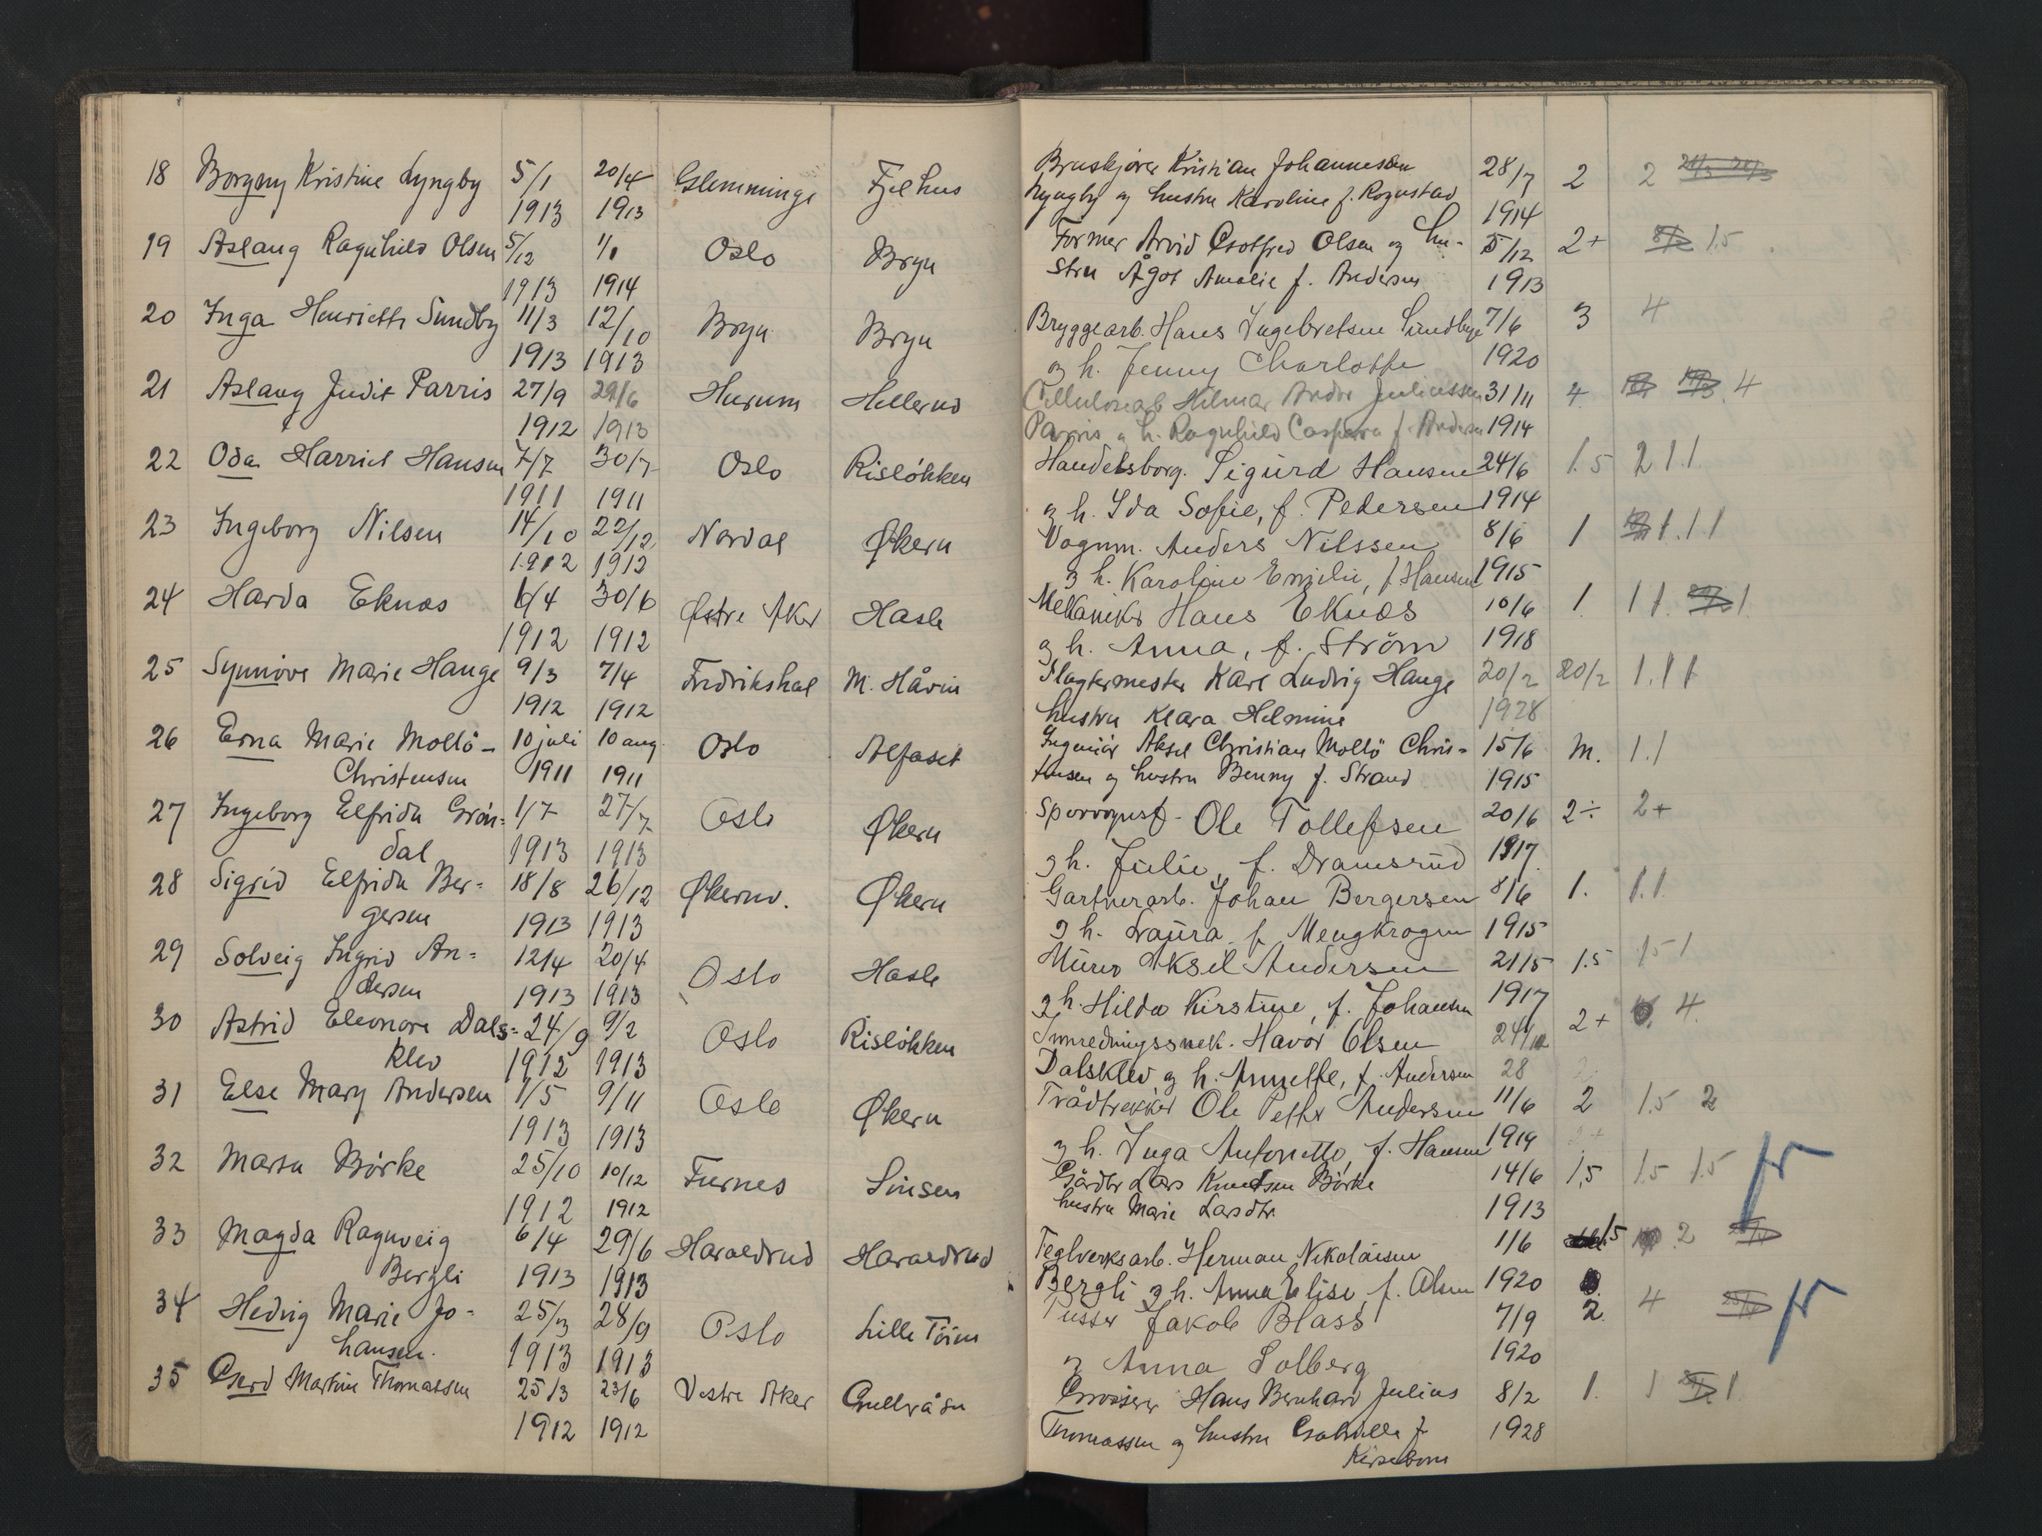 18 Borgny Kristine Lyngby 5/1 20/4 Glemminge Fjelhus Bruskjører Kristian Johannesen 28/7 2 2
1913 1913 Lyngby og hustru Karoline f. Rognstad 1914
19 Aslaug Ragnhild Olsen 5/12 1/1 Oslo Bryn Former Arvid Gotfred Olsen og hu- 5/12 2+ 15
1913 1914 stru Ågot Amalie f. Andersen 1913
20 Inga Henriette Sundby 11/3 12/10 Bryn Bryn Bryggearb. Hans Ingebretsen Sundbye 7/6 3 4
1913 1913 og h. Jenny Charlotte 1920
21 Aslaug Judit Parris 27/9 29/6 Hurum Hellerud Cellulosearb Hilmar Andor Juliussen 31/11 4. 4
1912 1913 Parris og h. Ragnhild Caspara f. Andersen 1914
22 Oda Harriet Hansen 7/7 30/7 Oslo Risløkken Handelsborg. Sigurd Hansen 24/6 1.5 2 1.1.
1911 1911 og h. Ida Sofie, f. Pedersen 1914
23 Ingeborg Nilsen 14/10 22/12 Nordal Økern Vognm. Anders Nilssen 8/6 1 1.1.1
1912 1912 og h. Karoline Emilie, f. Hansen 1915
24 Harda Eknæs 6/4 30/6 Østre Aker Hasle Mekaniker Hans Eknæs 10/6 1. 1 1. 1
1912 1912 og h. Anna, f. Strøm 1918
25 Synnøve Marie Hauge 9/3 7/4 Fredrikshal M. Håvin Slagtermester Karl Ludvig Hauge 20/2 20/2 1.1 1
1912 1912 hustru Klara Helmine 1928
26 Erna Marie Mollø- 10 juli 10 aug. Oslo Alfaset Ingeniør Aksel Christian Mollø Chris- 15/6 M. 1.1
Christensen 1911 1911 tensen og hustru Benny f. Strand 1915
27 Ingeborg Elfrida Grøn- 1/7 27/7 Oslo Økern Sporvognsf. Ole Tollefsen 20/6 2÷ 2+
dal 1913 1913 og h. Julie, f. Dramsrud 1917
28 Sigrid Elfrida Ber- 18/8 26/12 Økernv. Økern Gartnerarb. Johan Bergersen 8/6 1. 1.1.
gersen 1913 1913 og h. Laura f. Mengkrogen 1915
29 Solveig Ingrid An- 12/4 20/4 Oslo Hasle Murer Aksel Andersen 21/5 1.5 1.5 1
dersen 1913 1913 og h. Hilda Kirstine, f. Johansen 1917
30 Astrid Eleonore Dals- 24/9 9/2 Oslo Risløkken Innredningssnek. Havor Olsen 24/10 2+ 4.
klev 1912 1913 Dalsklev og h. Annette, f. Andersen 28
31 Else Mary Andersen 1/5 9/11 Oslo Økern Trådtrekker Ole Petter Andersen 11/6 2 1.5 2
1913 1913 og h. Inga Antonette, f. Hansen 1919
32 Marta Børke 25/10 10/12 Furnes Sinsen Gårdbr Lars Knudsen Børke 14/6 1,5 1.5 1.5 fr
1912 1912 hustru Marie Larsdtr. 1913
33 Magda Ragnveig 6/4 29/6 Haraldrud Haraldrud Teglverksarb. Herman Nikolaisen 1/6 1.5 2
Bergli 1913 1913 Bergli og h. Anna Elise, f. Olsen 1920
34 Hedvig Marie Jo- 25/3 28/9 Oslo Lille Tøien Pusser Jakob Blass 7/9 2. 4 fr
hansen. 1913 1913 og Anna Solberg 1920
35 Gerd Martine Thomassen 25/3 23/6 Vestre Aker Gullråsn Grosserer Hans Bernhard Julius 8/2 1. 1 1.
1912 1912 Thomassen og hustru f. 1928
Kirsebom